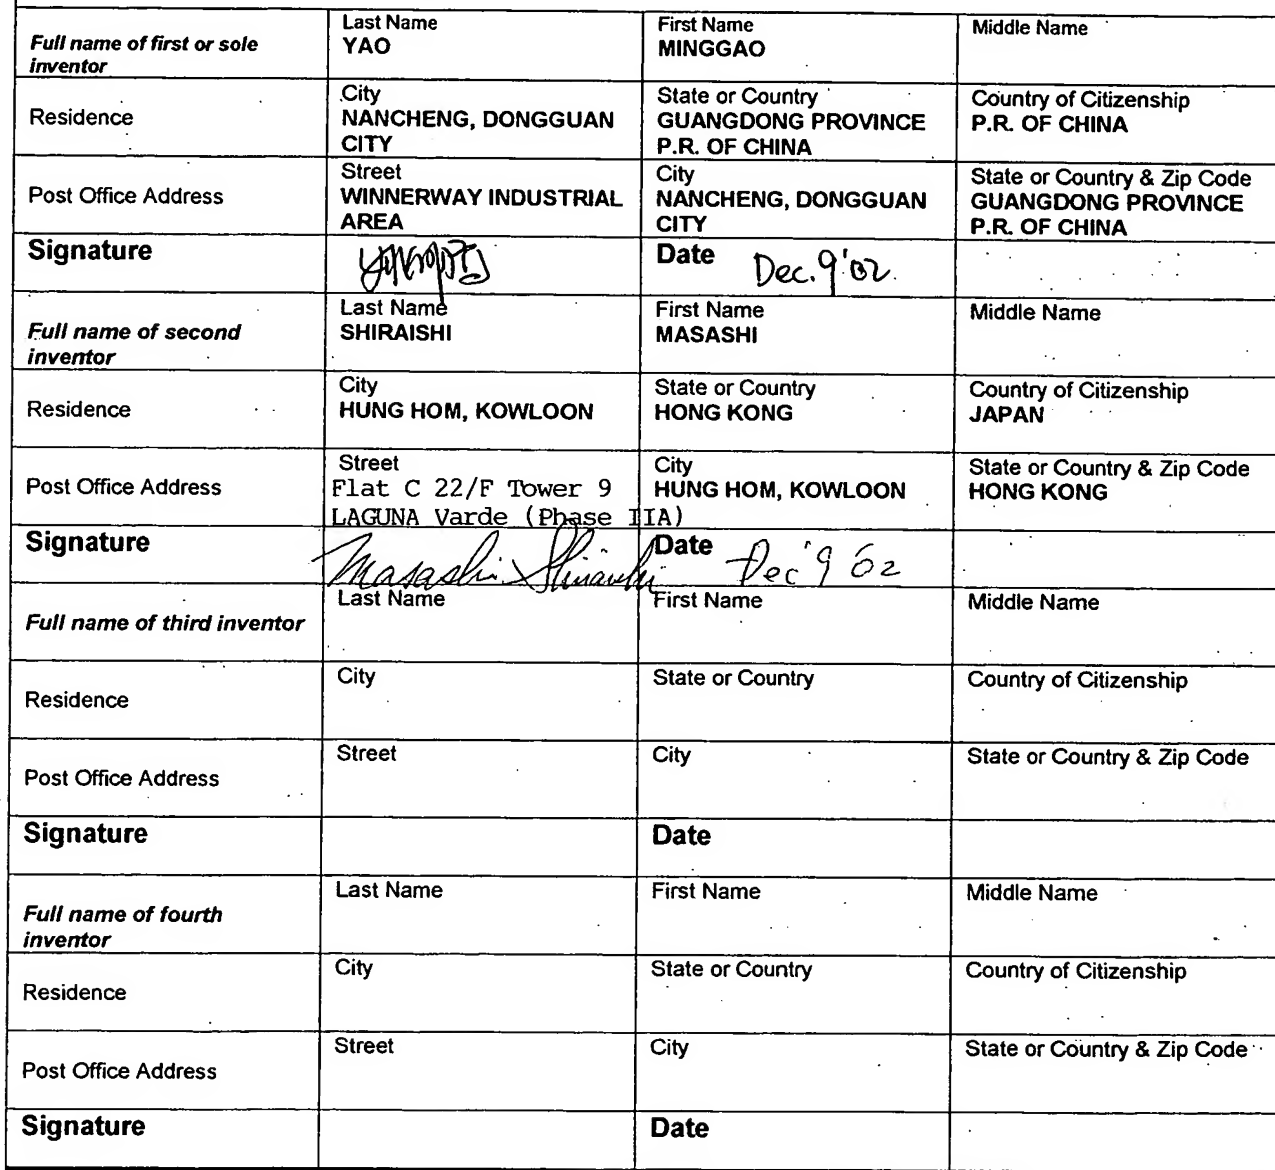 Full name of first or sole inventor
Last Name
YAO
First Name
MINGGAO
Middle Name
Residence
City
NANCHENG, DONGGUAN
CITY
State or Country
GUANGDONG PROVINCE
P.R. OF CHINA
Country of Citizenship
P.R. OF CHINA
Post Office Address
Street
WINNERWAY INDUSTRIAL
AREA
City
NANCHENG, DONGGUAN
CITY
State or Country & Zip Code
GUANGDONG PROVINCE
P.R. OF CHINA
Signature
Date
Dec. 9 '02
Full name of second
inventor
Last Name
SHIRAISHI
First Name
MASASHI
Middle Name
Residence
City
HUNG HOM, KOWLOON
State or Country
HONG KONG
Country of Citizenship
JAPAN
Post Office Address
Street
Flat C 22/F Tower 9
LAGUNA Varde (Phase IIA)
City
HUNG HOM, KOWLOON
State or Country & Zip Code
HONG KONG
Signature
Masashi Shiraishi
Date
Dec '9 02
Full name of third inventor
Last Name
First Name
Middle Name
Residence
City
State or Country
Country of Citizenship
Post Office Address
Street
City
State or Country & Zip Code
Signature
Date
Full name of fourth
inventor
Last Name
First Name
Middle Name
Residence
City
State or Country
Country of Citizenship
Post Office Address
Street
City
State or Country & Zip Code
Signature
Date